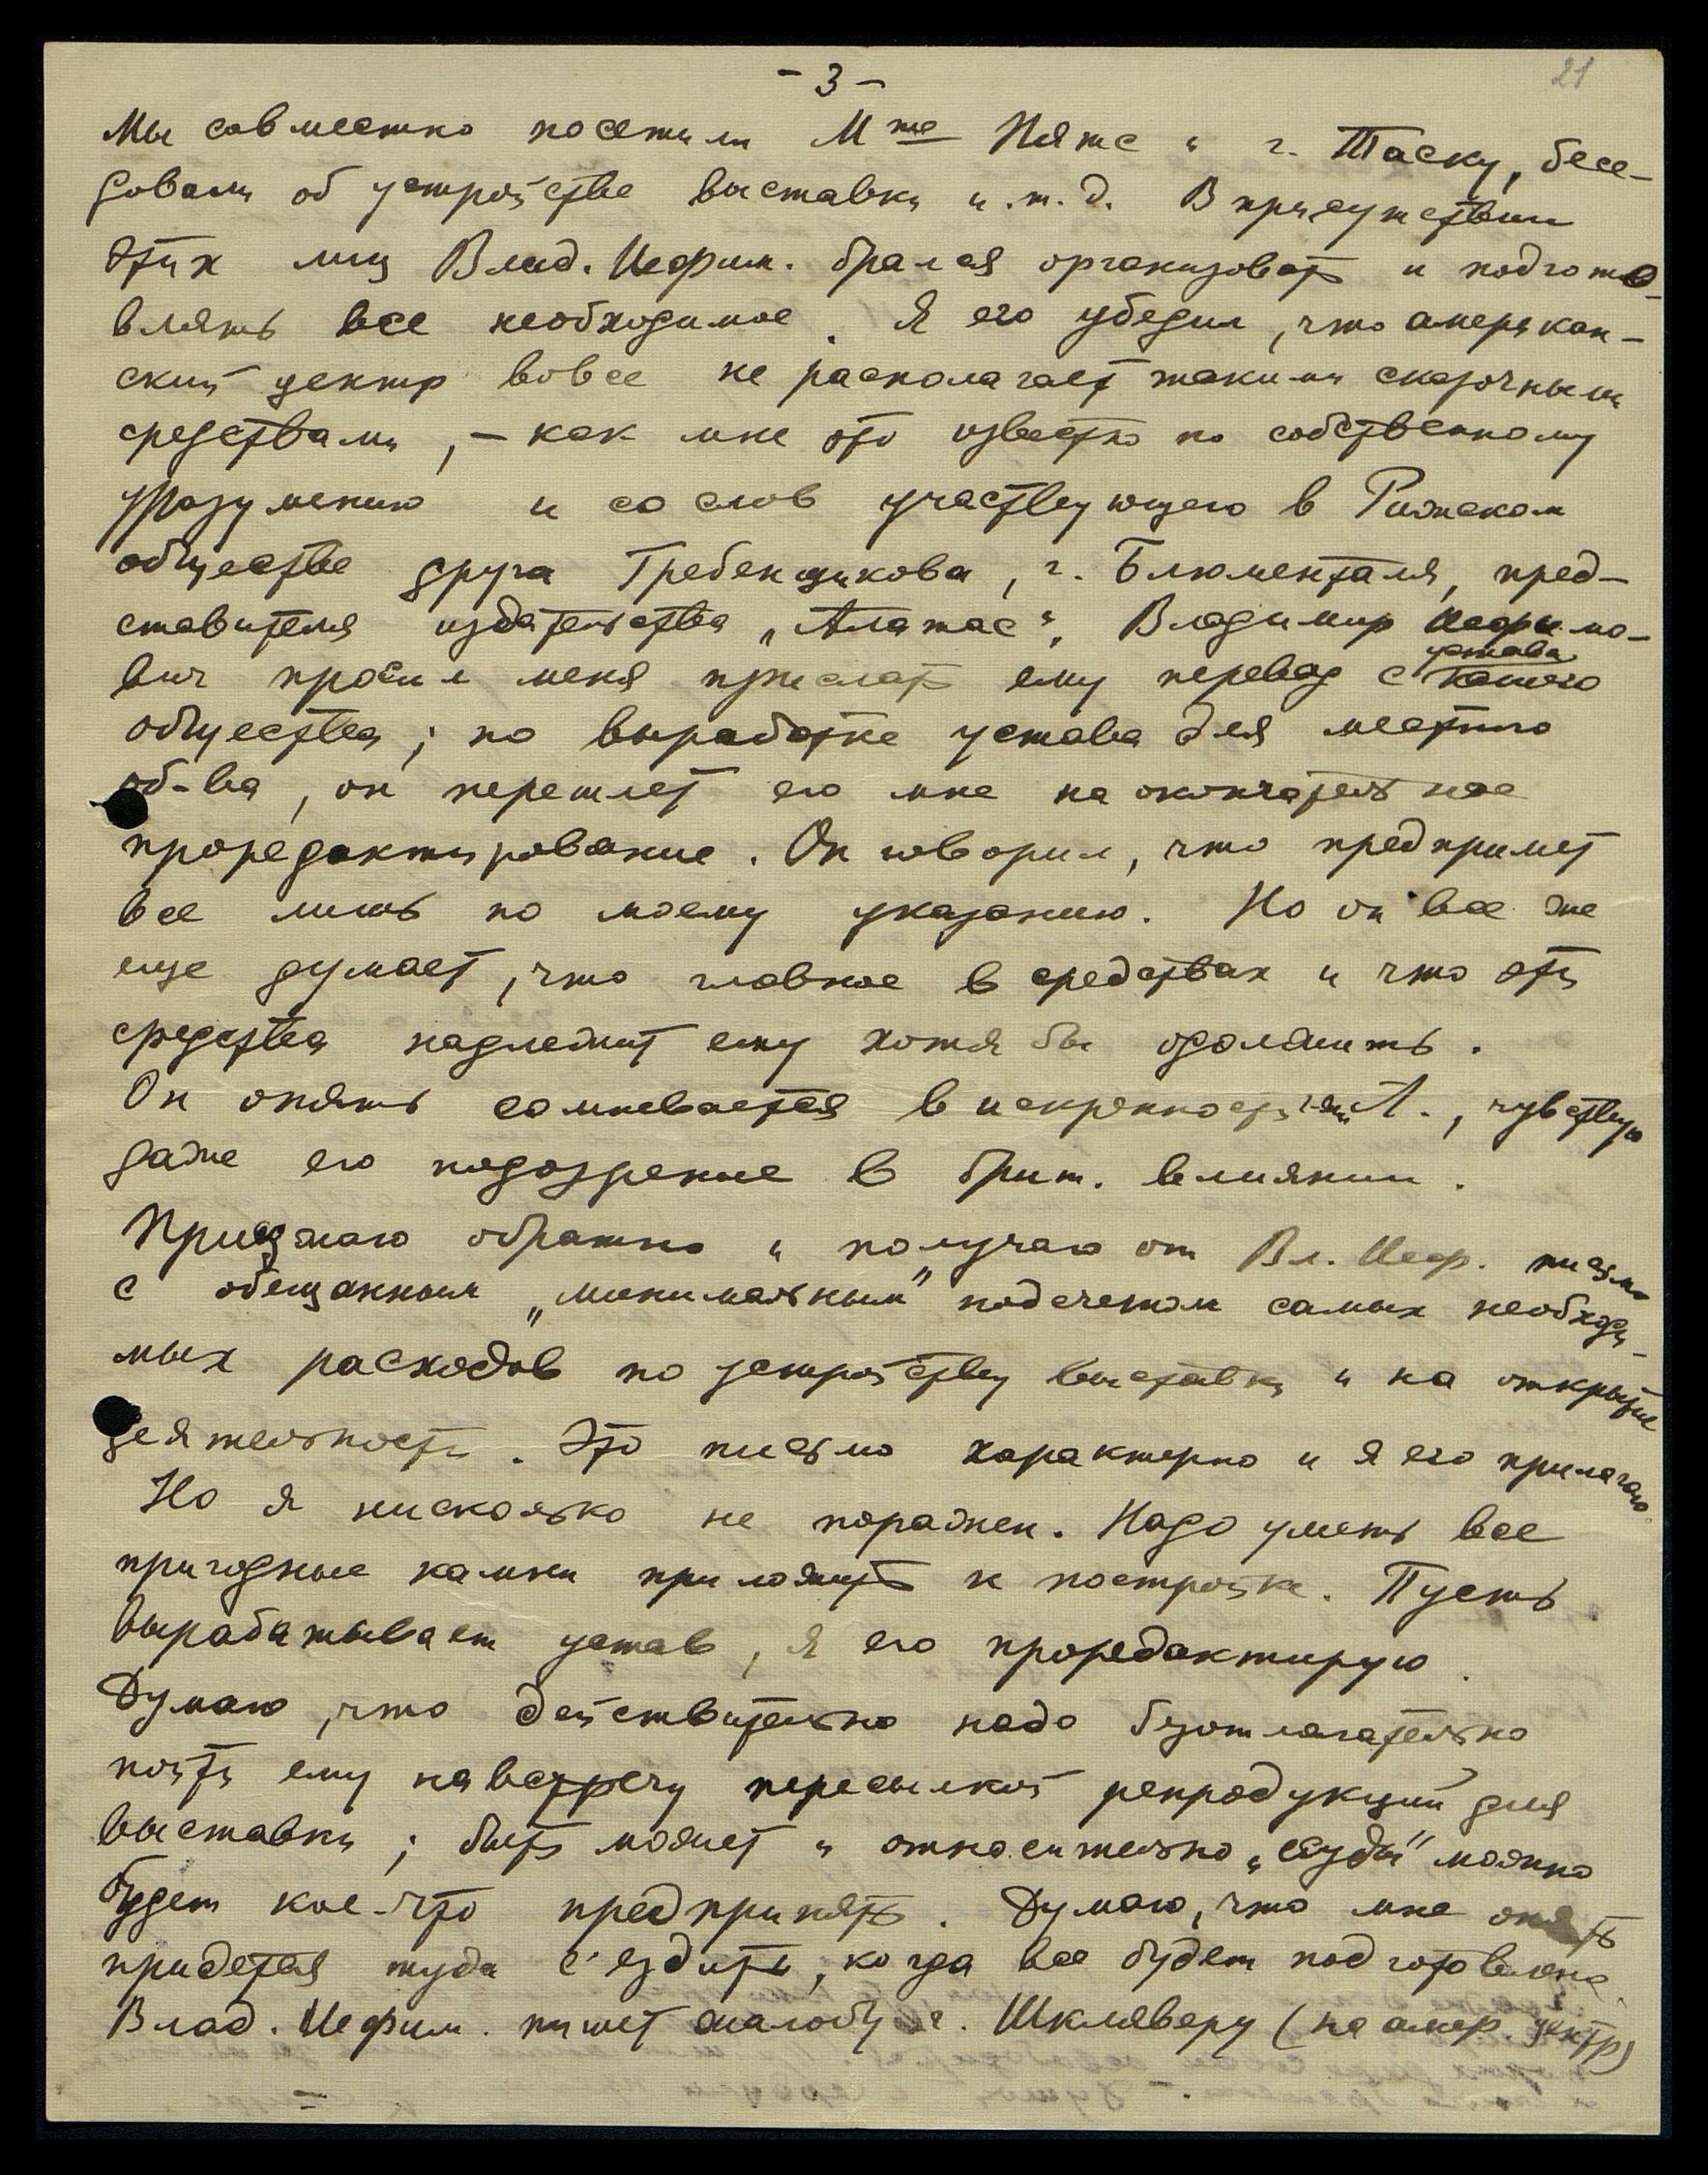 - 3 -
21
Мы совместно посетили Mme Пятс и г. Таску, бесе-
довали об устройстве выставки и.т.д. В присутствии
этих лиц Влад. Иефим. брался организовать и подгото-
влять все необходимое. Я его убедил, что американ-
ский центр вовсе не располагает такими сказочными
средствами, - как мне это известно по собственному
уразумению и со слов участвующего в Рижском
обществе друга Гребенщикова, г. Блюменталя, пред-
ставителя издательства „Алатас“. Владимир Иефимо-
вич просил меня прислать ему перевод с устава
нашего
общества; по выработке устава для местного
об-ва, он перешлет его мне на окончательное
проредактирование. Он говорил, что предпримет
все лишь по моему указанию. Но он все же
еще думает, что главное в средствах и что эти
средства надлежит ему хотя бы одолжить.
Он опять сомневается в искренности А., чувствую
даже его подозрение в брит. влиянии.
Приезжаю обратно и получаю от Вл. Иеф. письмо
с обещанным „минимальным“ подсчетом самых необходи-
мых расходов по устройству выставки и на открытие
деятельности. Это письмо характерно и я его прилагаю.
Но я нисколько не поражен. Надо уметь все
пригодные камни приложить к постройке. Пусть
вырабатывает устав, я его проредактирую.
Думаю, что действительно надо безотлагательно
пойти ему навстречу пересылкой репродукций для
выставки; быть может и относительно „ссуды“ можно
будет кое-что предпринять. Думаю, что мне опять
придется туда с'ездить, когда все будет подготовлено.
Влад. Иефим. пишет жалобу г. Шкляверу (на амер. центр)